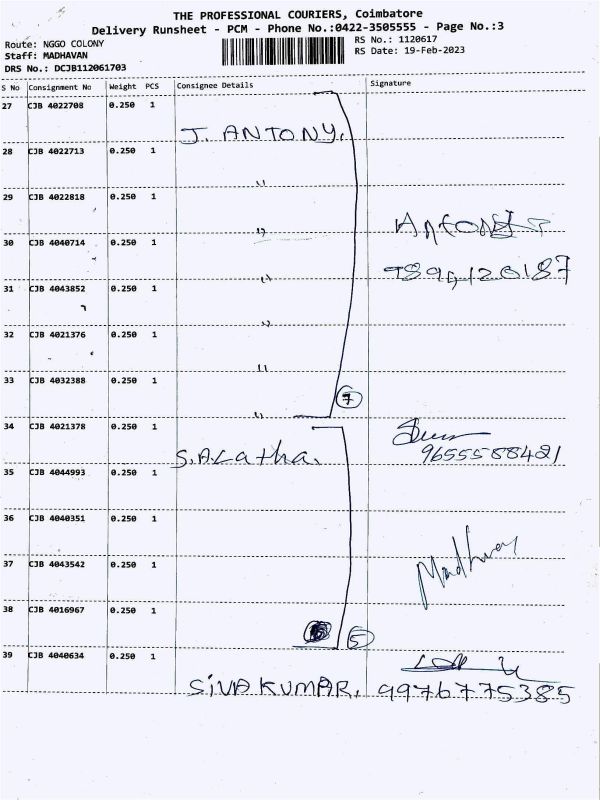 THE PROFESSIONAL COURIERS, Coimbatore
Delivery Runsheet - PCM - Phone No.:0422-3505555 - Page No.:3
Route: NGGO COLONY
RS No.: 1120617
Staff: MADHAVAN
RS Date: 19-Feb-2023
DRS No.: DCJB112061703
S No Consignment No Weight PCS Consignee Details Signature
27 CJB 4022708 0.250 1
J. ANTONY.
28 CJB 4022713 0.250 1
"
29 CJB 4022818 0.250 1
" Antony
30 CJB 4040714 0.250 1
"
31 CJB 4043852 0.250 1
"
32 CJB 4021376 0.250 1
"
33 CJB 4032388 0.250 1
" 7
34 CJB 4021378 0.250 1
S.A.Latha. 9655588421
35 CJB 4044993 0.250 1
36 CJB 4040351 0.250 1
37 CJB 4043542 0.250 1
Madhavan
38 CJB 4016967 0.250 1
5
39 CJB 4040634 0.250 1
SIVAKUMAR. 9976775385